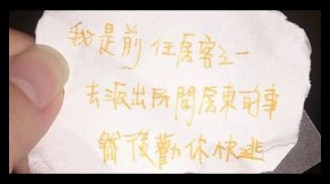 我是前任房客之一
去派出所問房東的事
然後勸你快逃